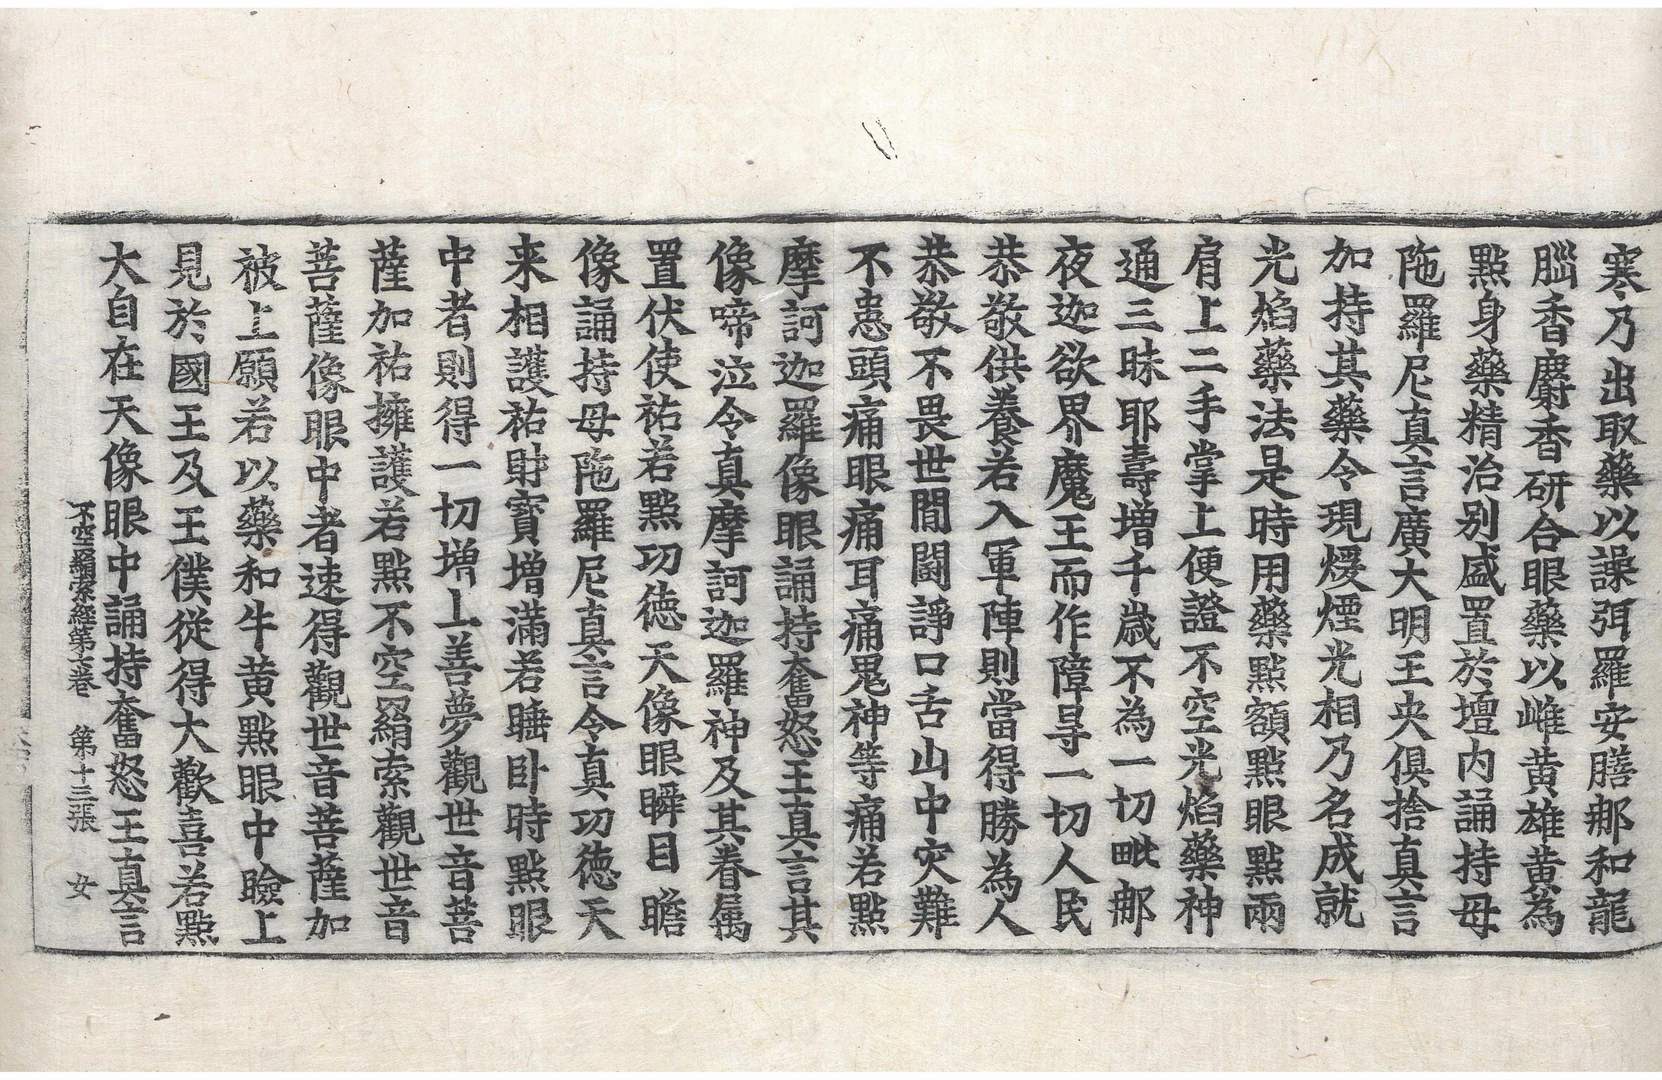 寒乃出取藥以譟弭羅安膳那和龍
腦香麝香研合眼藥以雌黄雄黄為
點身藥精治别盛置於壇内誦持母
陁羅尼真言廣大明王央俱捨真言
加持其藥令現煖煙光相乃名成就
光焰藥法是時用藥點額點眼點兩
肩上二手掌上便證不空光焰藥神
通三昧耶壽增千歲不為一切毗那
夜迦欲界魔王而作障㝵一切人民
恭敬供養若入軍陣則當得勝為人
恭敬不畏世間鬪諍口舌山中灾難
不患頭痛眼痛耳痛鬼神等痛若點
摩訶迦羅像眼誦持奮怒王真言其
像啼泣令真摩訶迦羅神及其眷属
置伏使祐若點功徳天像眼瞬目瞻
像誦持母陁羅尼真言令真功徳天
来相護祐財寳增滿若睡卧時點眼
中者則得一切增上善夢觀世音菩
薩加祐擁護若點不空羂索觀世音
菩薩像眼中者速得觀世音菩薩加
被上願若以藥和牛黄點眼中瞼上
見於國王及王僕從得大歡喜若點
大自在天像眼中誦持奮怒王真言
不空羂索經第七卷　第十三張　女